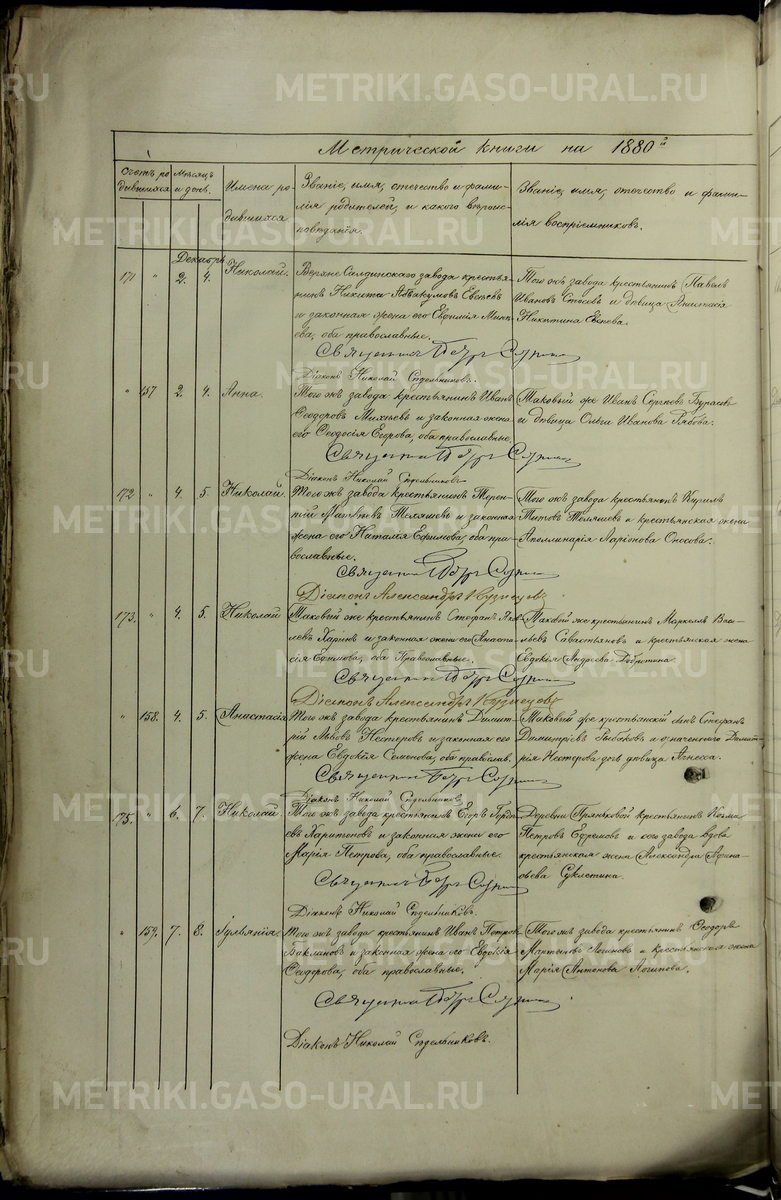 METRIKI.GASO-URAL.RU
Метрической книги на 1880й
Счетъ родившихся.
Мѣсяцъ и день.
Имена родившихся
Званіе, имя, отечество и фамилія родителей, и какого вѣроисповѣданія.
Званіе, имя, отечество и фамилія воспріемниковъ.
Декабрь
171 " 2. 4. Николай.
Верхне Салдинскаго завода крестья-
нинъ Никита Аввакумовъ
и законная жена его Евфимія
оба православные.
Священникъ Петръ
Діаконъ Николай Сѣдельниковъ.
Того жъ завода крестьянинъ Павелъ
Ивановъ и дѣвица Анастасія
Никитина
" 157 2. 4. Анна.
Того жъ завода крестьянинъ Иванъ
Ѳеодоровъ и законная жена
его Ѳеодосія Егорова, оба православные.
Священникъ Петръ
Діаконъ Николай Сѣдельниковъ
Таковый же Иванъ Сергѣевъ
и дѣвица Ольга Иванова Рябова.
172 " 4. 5. Николай.
Того жъ завода крестьянинъ Терен-
тій Матвѣевъ Теляшевъ и законная
жена его Наталія Ефимова, оба пра-
вославные.
Священникъ Петръ
Діаконъ Александръ Кузнецовъ
Того жъ завода крестьянинъ Кирилъ
Титовъ Теляшевъ и крестьянская жена
Апеллинарія Ларіонова Оносова.
173. " 4. 5. Николай
Таковый же крестьянинъ Стефанъ
Харинъ и законная жена его Анаста-
сія Ефимова, оба Православные.
Священникъ Петръ
Діаконъ Александръ Кузнецовъ
Таковой же крестьянинъ Маркеллъ Васи-
льевъ Савастьяновъ и крестьянская жена
Евдокія Андреева
" 158. 4. 5. Анастасія
Того жъ завода крестьянинъ Димит-
рій Львовъ Нестеровъ и законная его
жена Евдокія Семенова, оба правосл.
Священникъ Петръ
Діаконъ Николай Сѣдельниковъ
Таковый же крестьянскій сынъ Стефанъ
Димитріевъ Рыбаковъ и означеннаго Димит-
рія Нестерова дочь дѣвица Агнесса.
175. " 6. 7. Николай
Того жъ завода крестьянинъ Егоръ
Харитоновъ и законная жена его
Марія Петрова, оба православные.
Священникъ Петръ
Діаконъ Николай Сѣдельниковъ.
Деревни Пряниковой крестьянинъ Козма
Петровъ Ефремовъ и сего завода вдова
крестьянская жена Александра Афана-
сьева Суклетина.
" 159. 7. 8. Іульянія.
Того жъ завода крестьянинъ Иванъ Петровъ
Баклановъ и законная жена его Евдокія
Ѳеодорова, оба православные.
Священникъ Петръ
Діаконъ Николай Сѣдельниковъ.
Того жъ завода крестьянинъ Ѳеодоръ
Логиновъ и крестьянская жена
Марія Антонова Логинова.